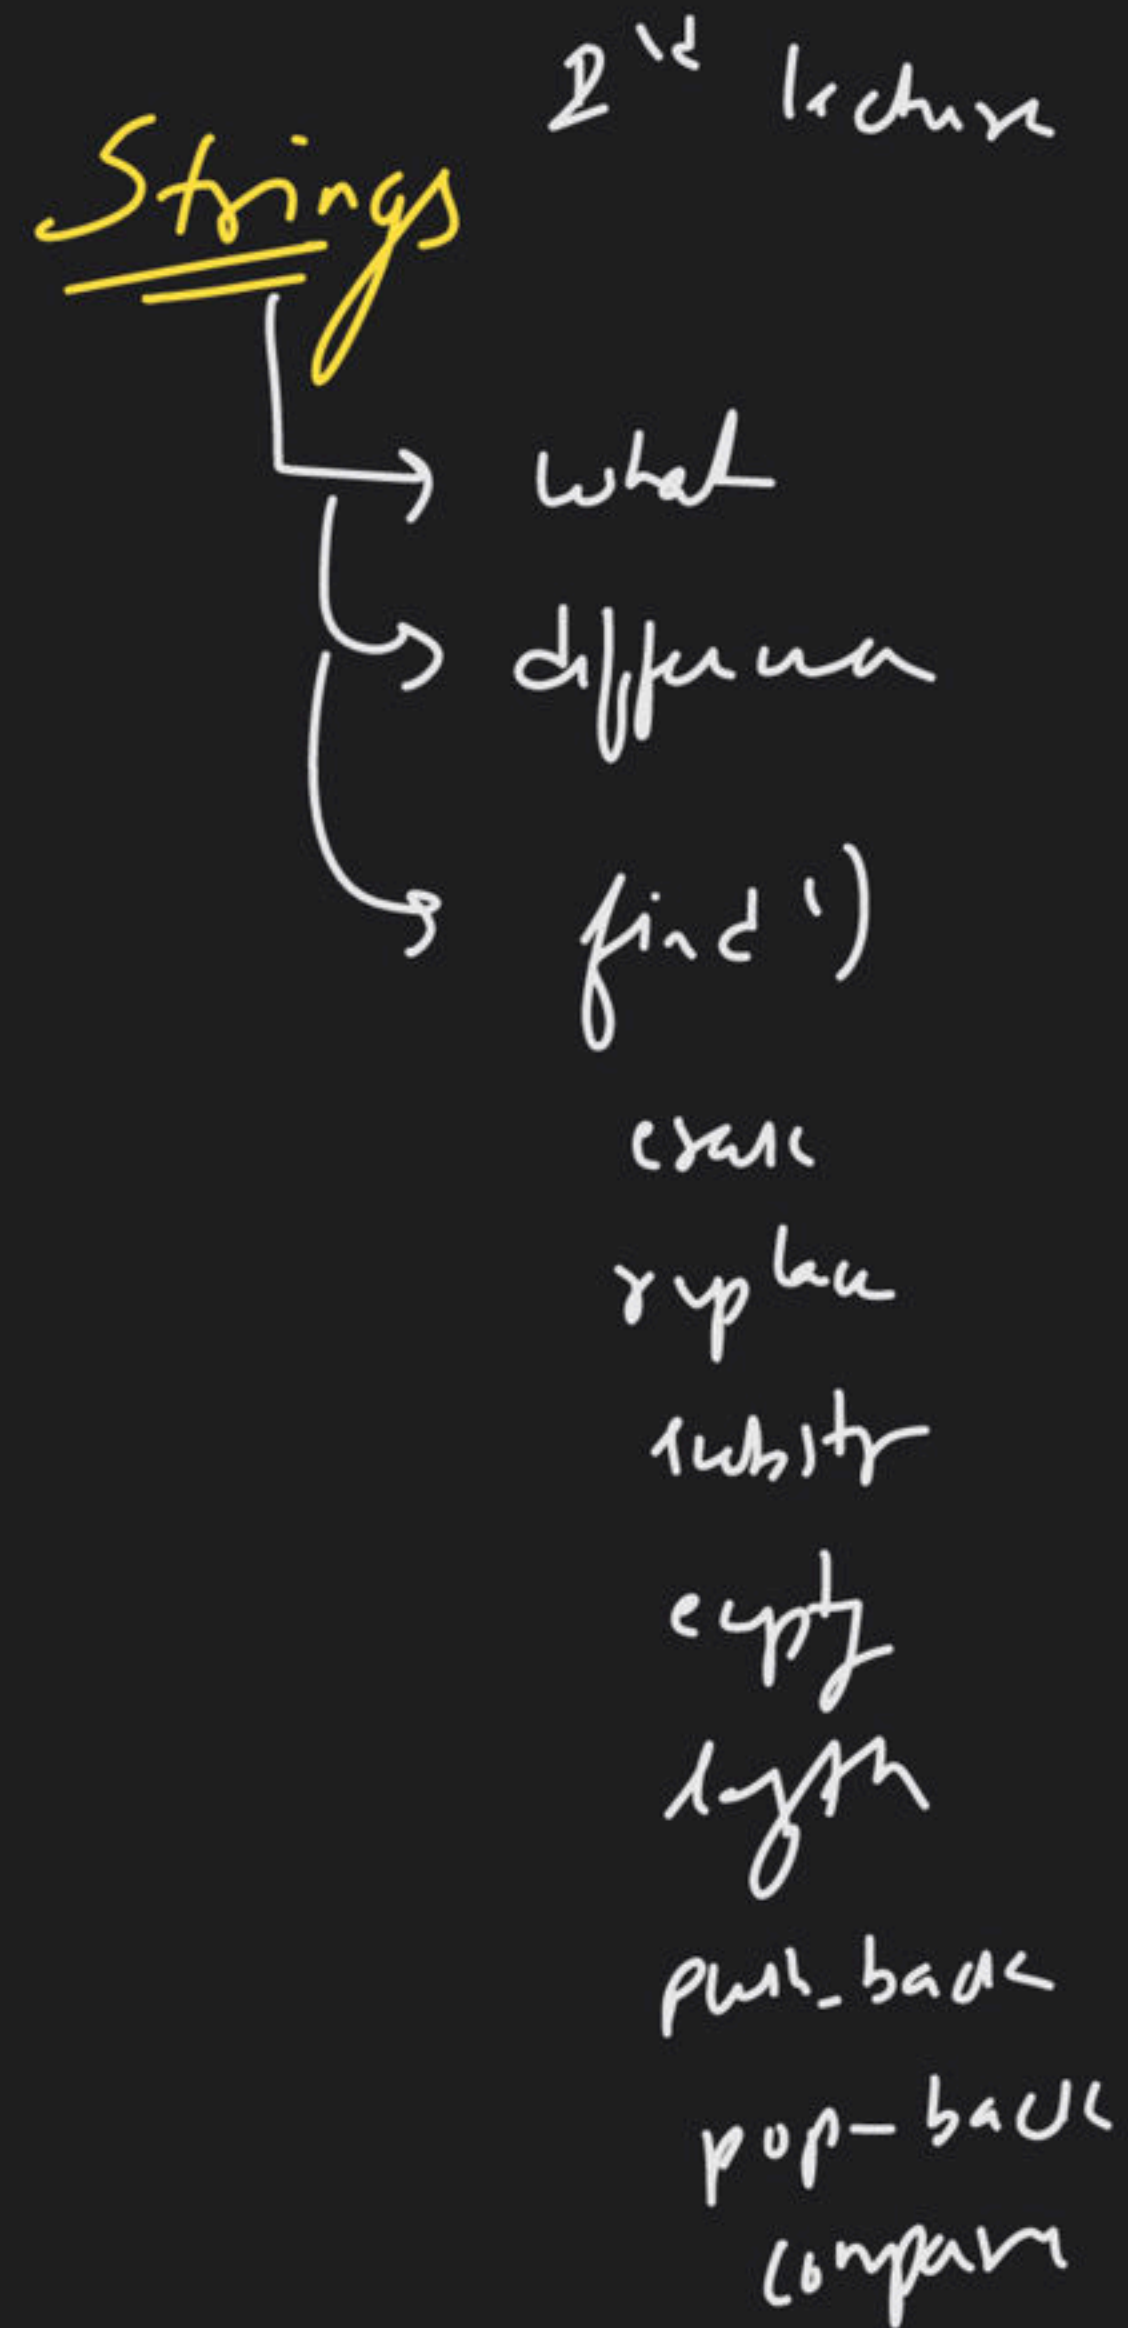 2nd lecture
Strings
what
difference
find()
erase
replace
substr
empty
length
push_back
pop-back
compare